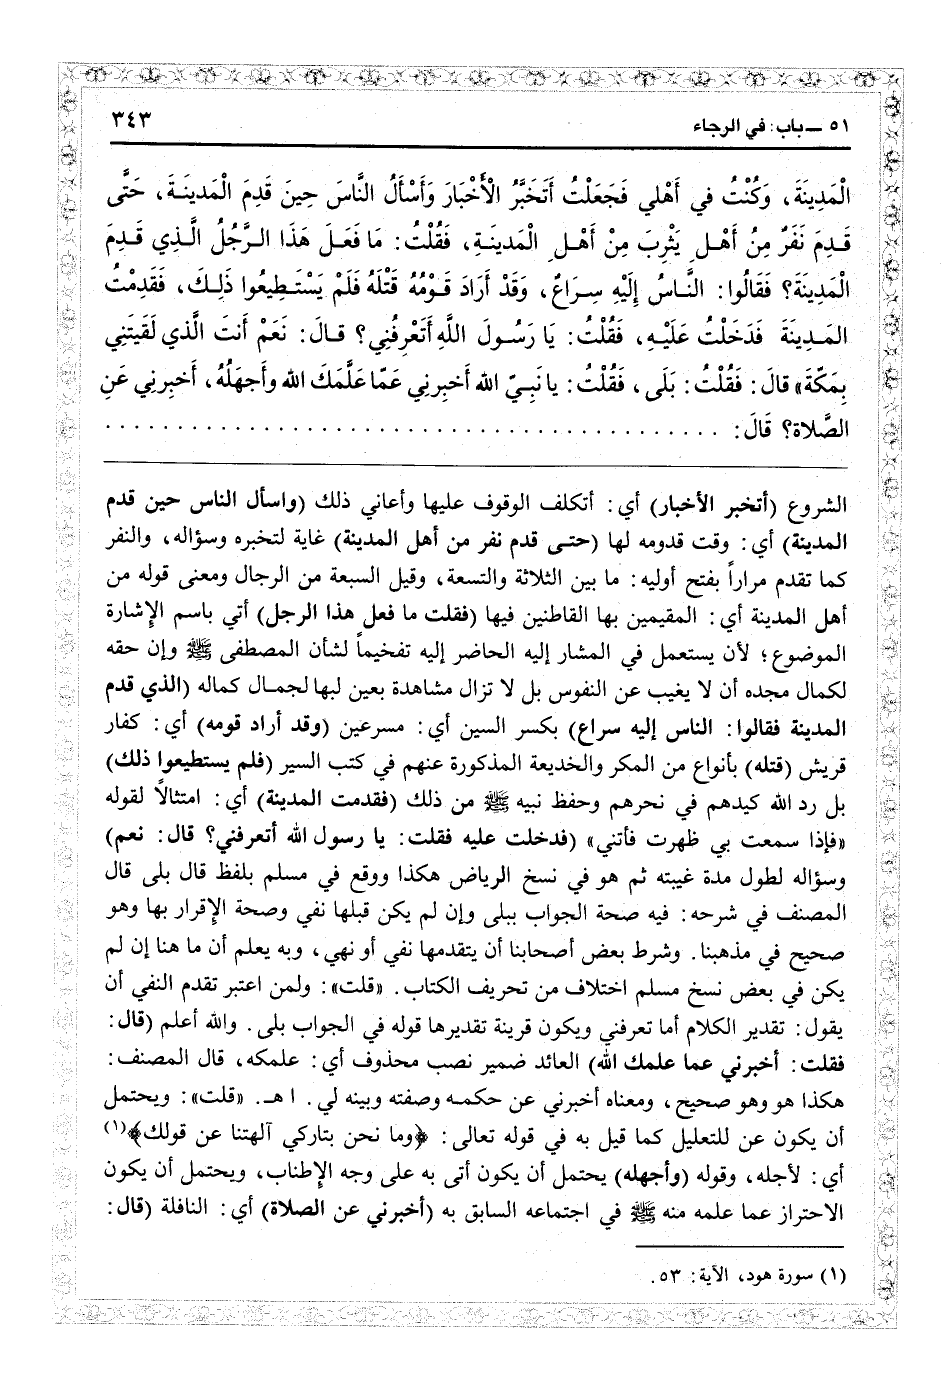 ٥١ – باب: في الرجاء ٣٤٣
الْمَدِينَةَ، وَكُنْتُ في أَهْلي فَجَعَلْتُ أَتَخَبَّرُ الْأَخْبَارَ وَأَسْأَلُ النَّاسَ حِينَ قَدِمَ الْمَدينَـةَ، حَتَّى
قَـدِمَ نَفَرٌ مِنُ أَهْـلِ يَثْرِبَ مِنْ أَهْـلِ الْمَدينَـةِ، فَقُلْتُ: مَا فَعَلَ هَذَا الـرَّجُلُ الَّـذي قَـدِمَ
الْمَدِينَةَ؟ فَقَالُوا: النَّـاسُ إِلَيْهِ سِـرَاعٌ، وَقَدْ أَرَادَ قَـوْمُهُ قَتْلَهُ فَلَمْ يَسْتَـطِيعُوا ذَلِـكَ، فَقَدِمْتُ
المَـدِينَةَ فَدَخَلْتُ عَلَيْـهِ، فَقُلْتُ: يَا رَسُـولَ اللَّهِ أَتَعْرِفُنِي؟ قـالَ: نَعَمْ أَنتَ الَّذي لَقَيتَنِي
بِمَكّةَ» قالَ: فَقُلْتُ: بَلَى، فَقُلْتُ: يا نَبِيّ الله أخبِرنِي عَمّا عَلَّمَكَ الله وأجهَلُهُ، أخبِرنِي عَنِ
الصَّلاة؟ قَالَ: . . . . . . . . . . . . . . . . . . . . . . . . . . . . . . . . . . . . . . . . . .
الشروع (أتخبر الأخبار) أي: أتكلف الوقوف عليها وأعاني ذلك (واسأل الناس حين قدم
المدينة) أي: وقت قدومه لها (حتـى قدم نفر من أهل المدينة) غاية لتخبره وسؤاله، والنفر
كما تقدم مراراً بفتح أوليه: ما بين الثلاثة والتسعة، وقيل السبعة من الرجال ومعنى قوله من
أهل المدينة أي: المقيمين بها القاطنين فيها (فقلت ما فعل هذا الرجل) أتي باسم الإِشارة
الموضوع؛ لأن يستعمل في المشار إليه الحاضر إليه تفخيماً لشأن المصطفى ﷺ وإن حقه
لكمال مجده أن لا يغيب عن النفوس بل لا تزال مشاهدة بعين لبها لجمـال كماله (الذي قدم
المدينة فقالوا: الناس إليه سراع) بكسر السين أي: مسرعين (وقد أراد قومه) أي: كفار
قريش (قتله) بأنواع من المكر والخديعة المذكورة عنهم في كتب السير (فلم يستطيعوا ذلك)
بل رد الله كيدهم في نحرهم وحفظ نبيه ﷺ من ذلك (فقدمت المدينة) أي: امتثالاً لقوله
«فإذا سمعت بي ظهرت فأتني» (فدخلت عليه فقلت: يا رسول الله أتعرفني؟ قال: نعم)
وسؤاله لطول مدة غيبته ثم هو في نسخ الرياض هكذا ووقع في مسلم بلفظ قال بلى قال
المصنف في شرحه: فيه صحة الجواب ببلى وإن لم يكن قبلها نفي وصحة الإِقرار بها وهو
صحيح في مذهبنا. وشرط بعض أصحابنا أن يتقدمها نفي أو نهي، وبه يعلم أن ما هنا إن لم
يكن في بعض نسخ مسلم اختلاف من تحريف الكتاب. «قلت»: ولمن اعتبر تقدم النفي أن
يقول: تقدير الكلام أما تعرفني ويكون قرينة تقديرها قوله في الجواب بلى. والله أعلم (قال:
فقلت: أخبرني عما علمك الله) العائد ضمير نصب محذوف أي: علمكه، قال المصنف:
هكذا هو وهو صحيح، ومعناه أخبرني عن حكمـه وصفته وبينه لي. ا هـ. «قلت»: ويحتمل
أن يكون عن للتعليل كما قيل به في قوله تعالى: ﴿وما نحن بتاركي آلهتنا عن قولك﴾(١)
أي: لأجله، وقوله (وأجهله) يحتمل أن يكون أتى به على وجه الإِطناب، ويحتمل أن يكون
الاحتراز عما علمه منه ﷺ في اجتماعه السابق به (أخبرني عن الصلاة) أي: النافلة (قال:
(١) سورة هود، الآية: ٥٣.